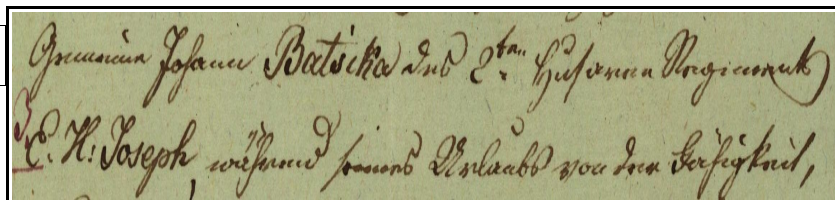 Gemeine Johann Batsika des 2ten Husaren Regiments
E. H: Joseph, während seines Urlaubs von der Fähigkeit,